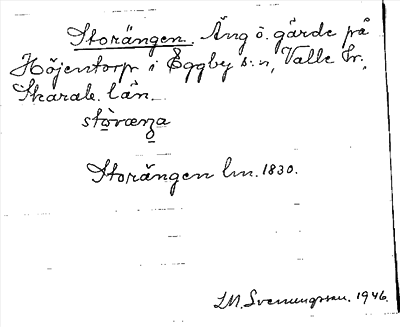 Storängen. Äng ö. gärde på
Höjentorp i Eggby s:n, Valle hr.,
Skarab. län.
stò̱ræŋa̱
Storängen lm. 1830.
L.M. Svenungsson. 1946.